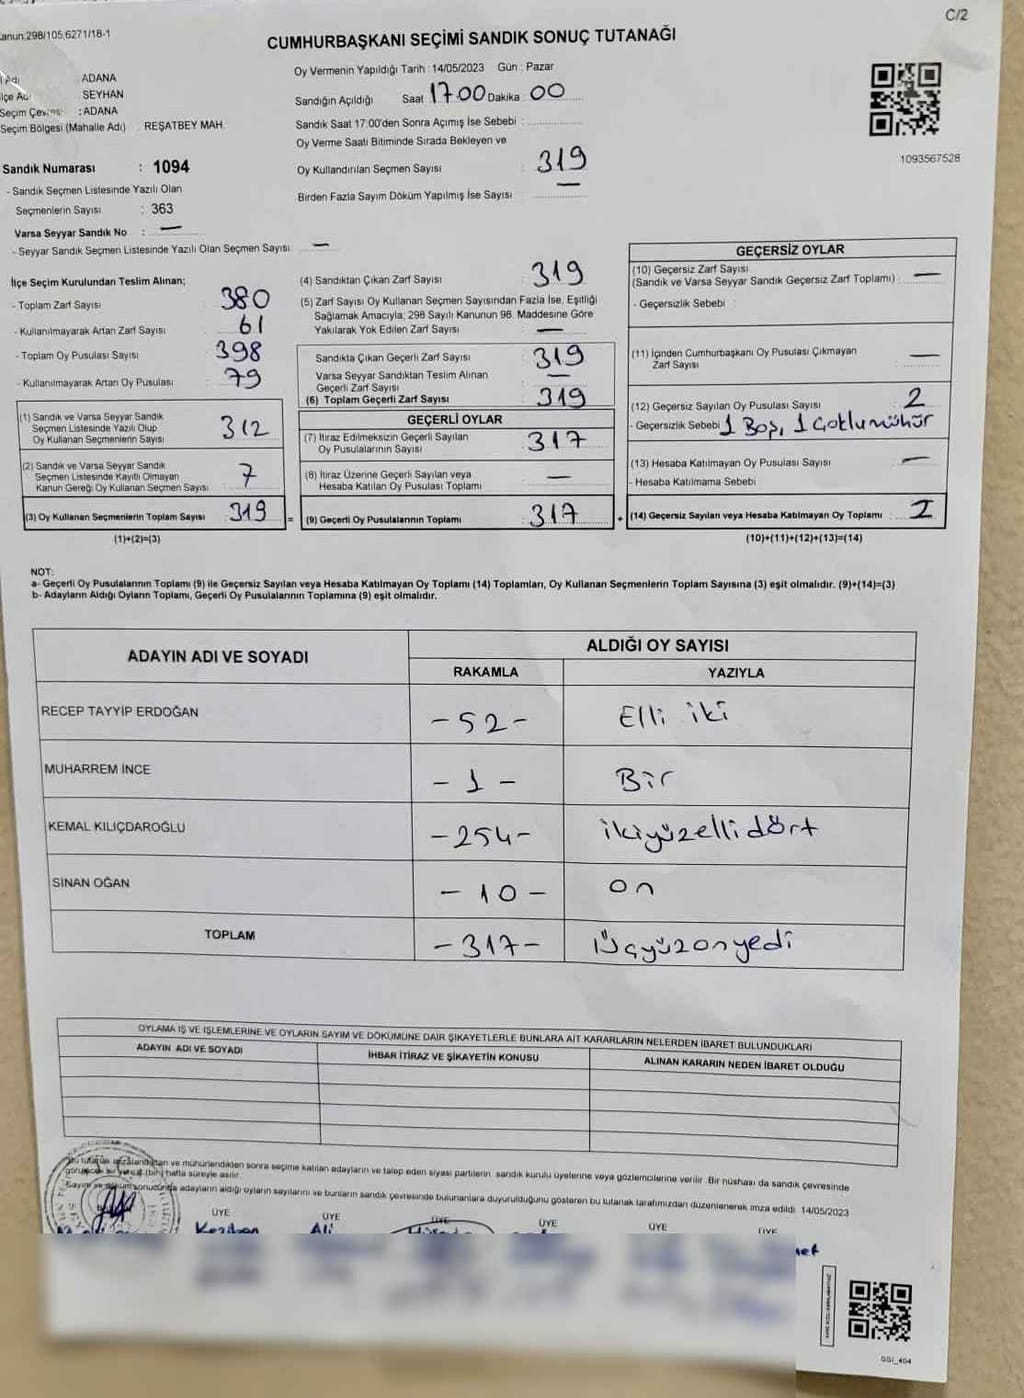 C/2
Kanun:298/105,6271/18-1
CUMHURBAŞKANI SEÇİMİ SANDIK SONUÇ TUTANAĞI
İl Adı : ADANA
İlçe Adı : SEYHAN
Seçim Çevresi : ADANA
Seçim Bölgesi (Mahalle Adı) REŞATBEY MAH.
Sandık Numarası : 1094
- Sandık Seçmen Listesinde Yazılı Olan
Seçmenlerin Sayısı : 363
Varsa Seyyar Sandık No : —
- Seyyar Sandık Seçmen Listesinde Yazılı Olan Seçmen Sayısı : —
Oy Vermenin Yapıldığı Tarih : 14/05/2023 Gün : Pazar
Sandığın Açıldığı Saat 17.00 Dakika 00
Sandık Saat 17:00'den Sonra Açımış İse Sebebi :
Oy Verme Saati Bitiminde Sırada Bekleyen ve
Oy Kullandırılan Seçmen Sayısı : 319
Birden Fazla Sayım Döküm Yapılmış İse Sayısı : —
1093567528
İlçe Seçim Kurulundan Teslim Alınan;
- Toplam Zarf Sayısı : 380
- Kullanılmayarak Artan Zarf Sayısı : 61
- Toplam Oy Pusulası Sayısı : 398
- Kullanılmayarak Artan Oy Pusulası : 79
(1) Sandık ve Varsa Seyyar Sandık
Seçmen Listesinde Yazılı Olup
Oy Kullanan Seçmenlerin Sayısı : 312
(2) Sandık ve Varsa Seyyar Sandık
Seçmen Listesinde Kayıtlı Olmayan
Kanun Gereği Oy Kullanan Seçmen Sayısı : 7
(3) Oy Kullanan Seçmenlerin Toplam Sayısı : 319 =
(1)+(2)=(3)
(4) Sandıktan Çıkan Zarf Sayısı : 319
(5) Zarf Sayısı Oy Kullanan Seçmen Sayısından Fazla İse, Eşitliği
Sağlamak Amacıyla, 298 Sayılı Kanunun 98. Maddesine Göre
Yakılarak Yok Edilen Zarf Sayısı : —
Sandıkta Çıkan Geçerli Zarf Sayısı : 319
Varsa Seyyar Sandıktan Teslim Alınan
Geçerli Zarf Sayısı : —
(6) Toplam Geçerli Zarf Sayısı : 319
GEÇERLİ OYLAR
(7) İtiraz Edilmeksizin Geçerli Sayılan
Oy Pusulalarının Sayısı : 317
(8) İtiraz Üzerine Geçerli Sayılan veya
Hesaba Katılan Oy Pusulası Toplamı : —
(9) Geçerli Oy Pusulalarının Toplamı : 317 +
GEÇERSİZ OYLAR
(10) Geçersiz Zarf Sayısı
(Sandık ve Varsa Seyyar Sandık Geçersiz Zarf Toplamı) : —
- Geçersizlik Sebebi :
(11) İçinden Cumhurbaşkanı Oy Pusulası Çıkmayan
Zarf Sayısı : —
(12) Geçersiz Sayılan Oy Pusulası Sayısı : 2
- Geçersizlik Sebebi : 1 Boş, 1 Çoklu mühür
(13) Hesaba Katılmayan Oy Pusulası Sayısı : —
- Hesaba Katılmama Sebebi :
(14) Geçersiz Sayılan veya Hesaba Katılmayan Oy Toplamı : 2
(10)+(11)+(12)+(13)=(14)
NOT:
a- Geçerli Oy Pusulalarının Toplamı (9) ile Geçersiz Sayılan veya Hesaba Katılmayan Oy Toplamı (14) Toplamları, Oy Kullanan Seçmenlerin Toplam Sayısına (3) eşit olmalıdır. (9)+(14)=(3)
b- Adayların Aldığı Oyların Toplamı, Geçerli Oy Pusulalarının Toplamına (9) eşit olmalıdır.
ADAYIN ADI VE SOYADI ALDIĞI OY SAYISI
RAKAMLA YAZIYLA
RECEP TAYYİP ERDOĞAN -52- Elli iki
MUHARREM İNCE -1- Bir
KEMAL KILIÇDAROĞLU -254- ikiyüzellidört
SİNAN OĞAN -10- on
TOPLAM -317- Üçyüzonyedi
OYLAMA İŞ VE İŞLEMLERİNE VE OYLARIN SAYIM VE DÖKÜMÜNE DAİR ŞİKAYETLERLE BUNLARA AİT KARARLARIN NELERDEN İBARET BULUNDUKLARI
ADAYIN ADI VE SOYADI İHBAR İTİRAZ VE ŞİKAYETİN KONUSU ALINAN KARARIN NEDEN İBARET OLDUĞU
Bu tutanak imzalandıktan ve mühürlendikten sonra seçime katılan adayların ve talep eden siyasi partilerin sandık kurulu üyelerine veya gözlemcilerine verilir. Bir nüshası da sandık çevresinde
görülecek bir yere (bir) hafta süreyle asılır.
Sayım ve döküm sonucunda adayların aldığı oyların sayılarını ve bunların sandık çevresinde bulunanlara duyurulduğunu gösteren bu tutanak tarafımızdan düzenlenerek imza edildi. 14/05/2023
ÜYE ÜYE ÜYE ÜYE ÜYE ÜYE
Keziban Ali
GSI_404